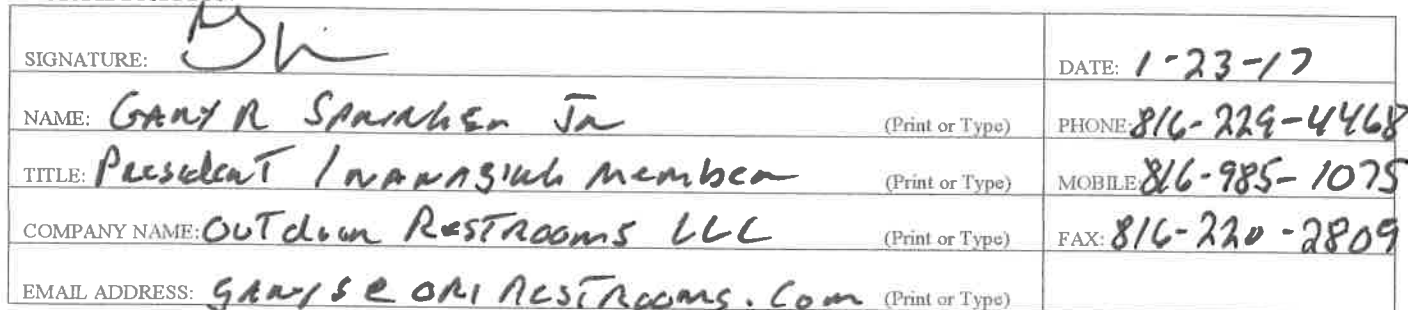 SIGNATURE: DATE: 1-23-17
NAME: GARY R Jr (Print or Type) PHONE: 816-229-4468
TITLE: President / managing member (Print or Type) MOBILE: 816-985-1075
COMPANY NAME: Outdoor Restrooms LLC (Print or Type) FAX: 816-220-2809
EMAIL ADDRESS: garys@orirestrooms.com (Print or Type)